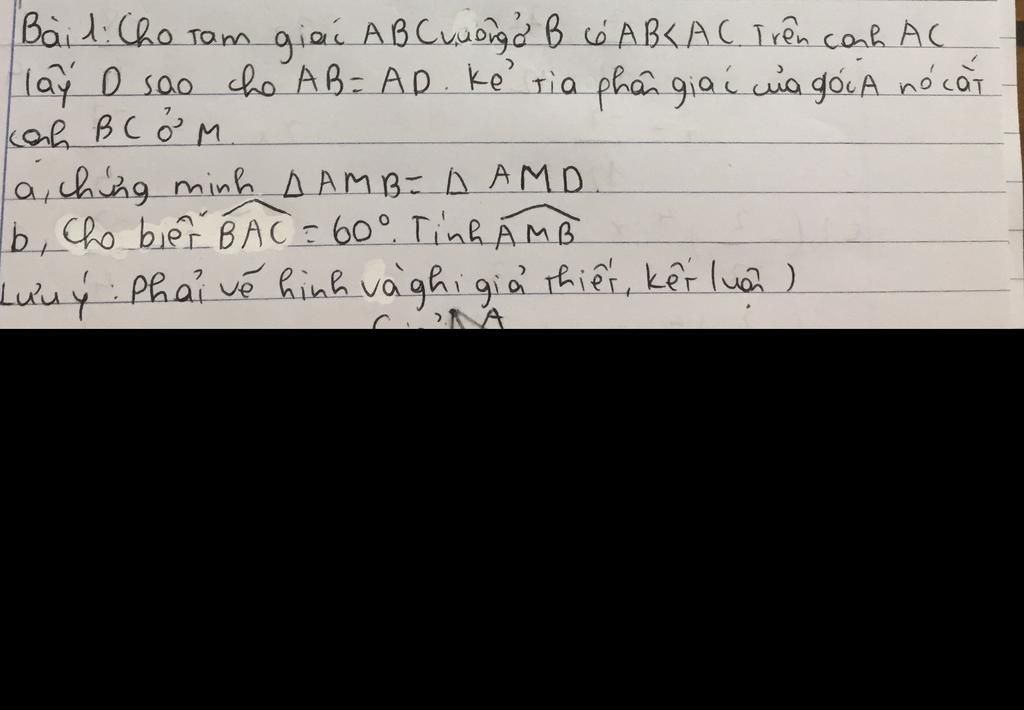 Bài 1: Cho tam giác ABC vuông ở B có AB < AC. Trên cạnh AC
lấy D sao cho AB = AD. Kẻ tia phân giác của góc A nó cắt
cạnh BC ở M.
a, chứng minh Δ AMB = Δ AMD.
b, Cho biết BAC = 60°. Tính AMB
Lưu ý: Phải vẽ hình và ghi giả thiết, kết luận)
A